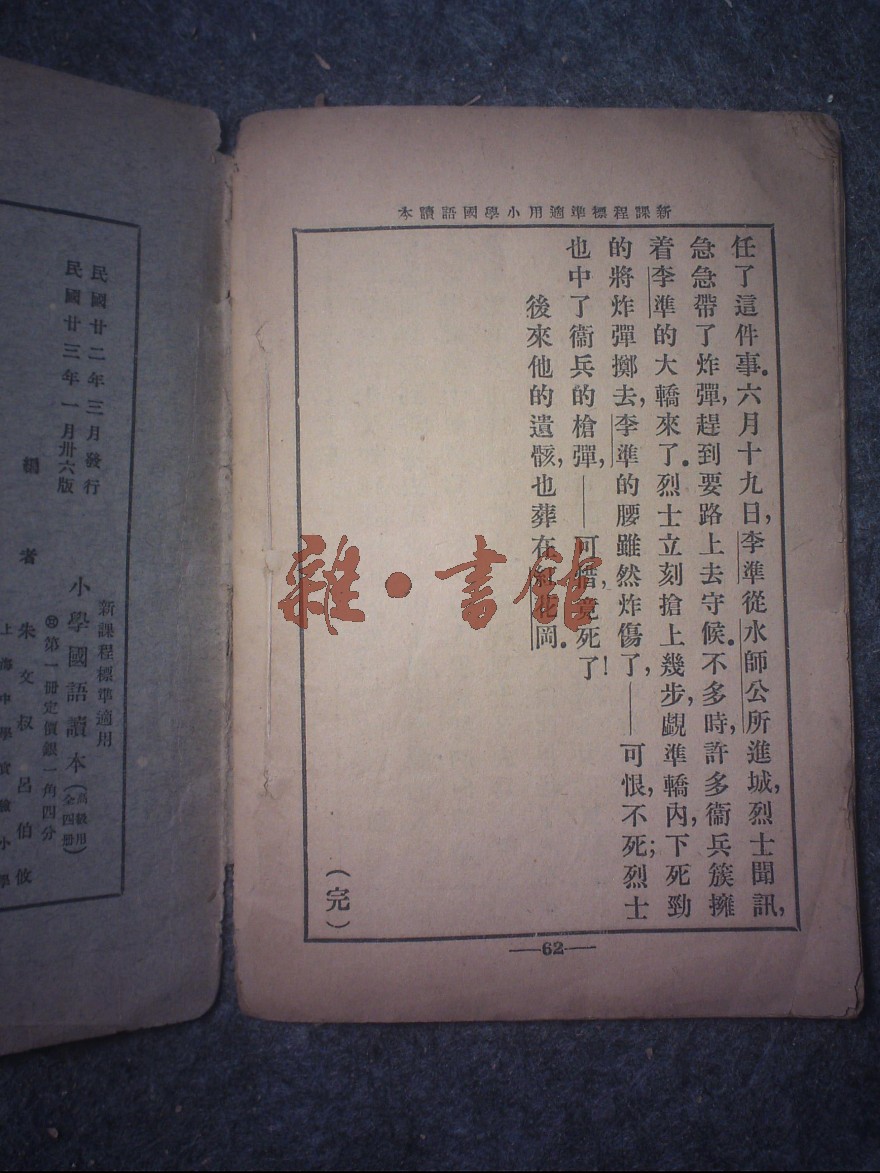 新課程標準適用小學國語讀本
任了這件事。六月十九日，李準從水師公所進城，烈士聞訊，
急急帶了炸彈，趕到要路上去守候。不多時，許多衞兵簇擁
着李準的大轎來了。烈士立刻搶上幾步，覷準轎內，下死勁
的將炸彈擲去，李準的腰雖然炸傷了，——可恨，不死；烈士
也中了衞兵的槍彈，——可惜，竟死了！
後來他的遺骸，也葬在紅花岡。
（完）
—62—
雜·書館
新課程標準適用
小學國語讀本（高級用全四冊）
第一冊定價銀一角四分
民國廿二年三月發行
民國廿三年一月卅六版
編者 朱文叔 呂伯攸
上海中學實驗小學